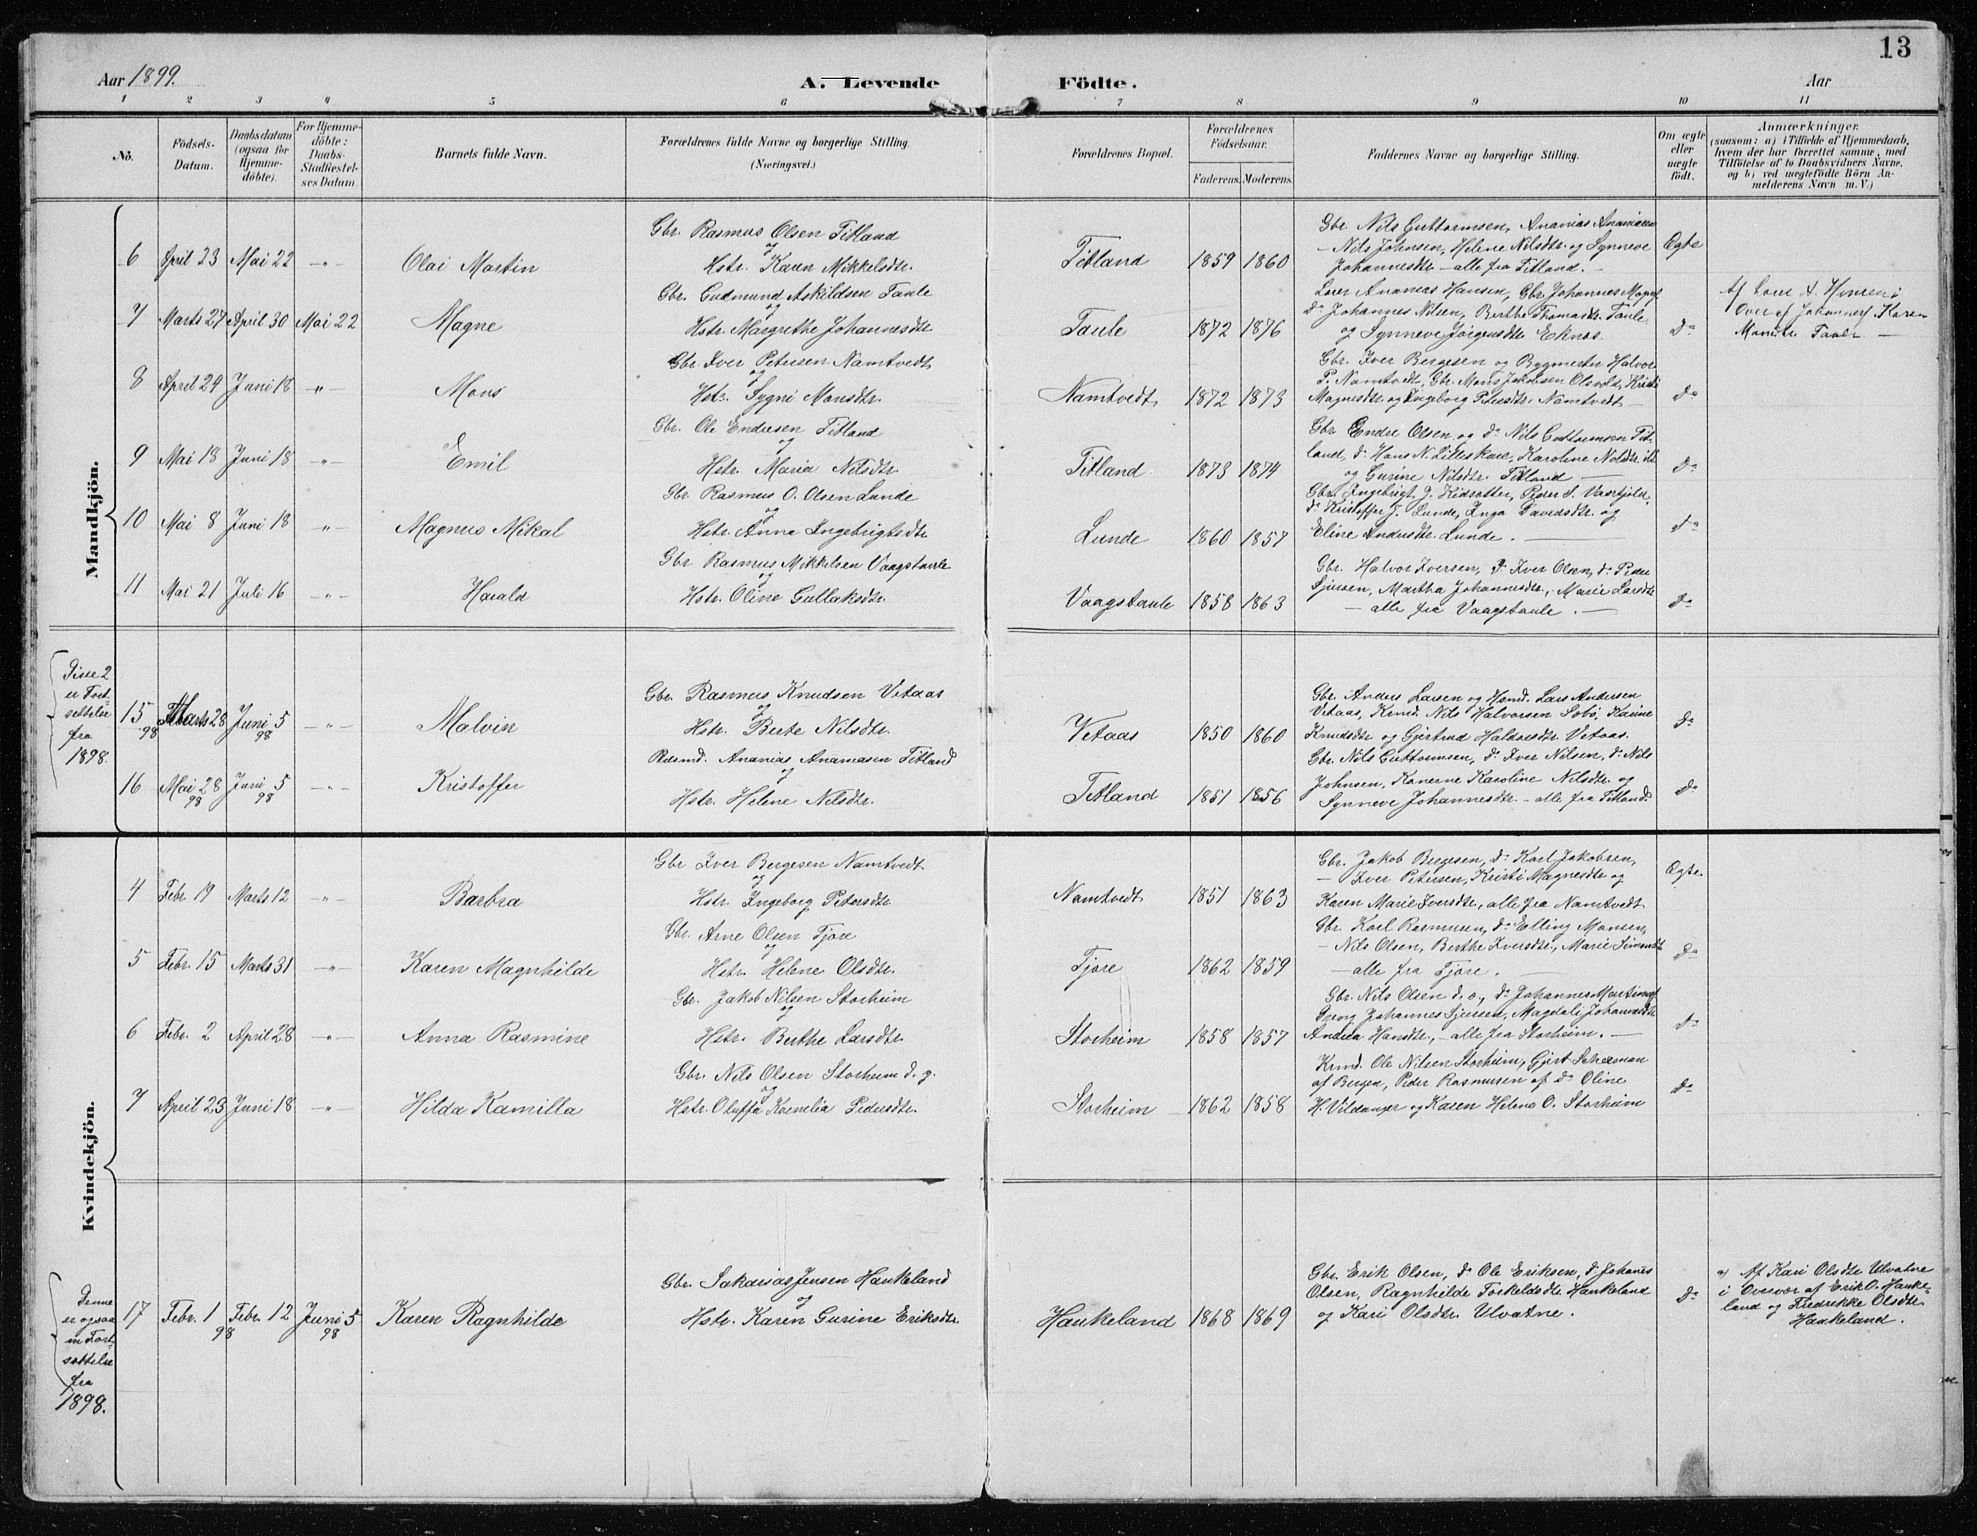 13
Aar 1899.
A. Levende Födte.
Aar
1 2 3 4 5 6 7 8 9 10 11
No.
Födsels-Datum.
Daabsdatum (ogsaa for Hjemme-döbte).
For Hjemme-döbte: Daabs-Stadfæstel-ses Datum.
Barnets fulde Navn.
Forældrenes fulde Navne og borgerlige Stilling. (Næringsvei.)
Forældrenes Bopæl.
Forældrenes Födselsaar.
Faderens. Moderens.
Faddernes Navne og borgerlige Stilling.
Om ægte eller uægte födt.
Anmærkninger.
(saasom: a) i Tilfælde af Hjemmedaab, hvem der har forrettet samme, med Tilföielse af to Daabsvidners Navne, og b) ved uægtefödte Börn An-melderens Navn m. V.)
Mandkjön.
Gbr. Rasmus Olsen Titland
og
6 April 23 Mai 22 -"- Olai Martin Hstr. Karen Mikkelsdtr. Titland 1859 1860
Gbr. Nils Guttormsen, Ananias Ananiasen
- Nils Johnsen, Helene Nilsdtr. og Synneve
Johannesdtr. - alle fra Titland. -
Ægte
Gbr. Gudmund Askildsen Taule
og
7 Marts 27 April 30 Mai 22 Magne Hstr. Margrethe Johannesdtr. Taule 1872 1876
Ananias Hansen, Gbr. Johannes
Do Johannes Nilsen, Berthe Thomasdtr. Taule
og Synneve Jörgensdtr. Eknes.
Do
Gbr. Iver Petersen Namtvedt
og
8 April 24 Juni 18 -"- Mons Hstr. Sygni Monsdtr. Namtvedt 1872 1873
Gbr. Iver Bergesen og Bygmester Halvor
P. Namtvedt, Gbr. Mons Jakobsen Kristi
Magnesdtr. og Ingeborg Petersdtr. Namtvedt -
Do
Gbr. Ole Endresen Titland
og
9 Mai 18 Juni 18 -"- Emil Hstr. Maria Nilsdtr. Titland. 1873 1874
Gbr. Endre Olsen og Do Nils Guttormsen Tit-
land, Do Hans N. Litleskare, Karoline Nilsdtr.
og Gurine Nilsdtr. Titland -
Do
Gbr. Rasmus O. Olsen Lunde
og
10 Mai 8 Juni 18 -"- Magnus Mikal Hstr. Anna Ingebrigtsdtr. Lunde 1860 1857
Gbr. Ingebrigt J. Peder S.
Do Kristoffer J. Lunde, Inga Davidsdtr. og
Eline Andersdtr. Lunde. -
Do
Gbr. Rasmus Mikkelsen Vaagstaule
og
11 Mai 21 Juli 16 -"- Harald Hstr. Oline Gullaksdtr. Vaagstaule 1858 1863
Gbr. Halvor Iversen, Do Iver Olsen, Do Peder
Sjursen, Martha Johannesdtr., Marie Larsdtr.
- alle fra Vaagstaule. -
Do
Disse 2
er Fort-
sættelse
fra
1898.
Gbr. Rasmus Knudsen Vetaas
og
15 Marts 28 98 Juni 5 98 -"- Malvin Hstr. Berte Nilsdtr. Vetaas 1850 1860
Gbr. Anders Larsen og Lars Andersen
Vetaas, Nils Halvorsen Karine
Knudsdtr. og Gjertrud Vetaas.
Do
Ananias Ananiasen Titland
og
16 Mai 28 98 Juni 5 98 -"- Kristoffer Hstr. Helene Nilsdtr. Titland 1851 1856
Gbr. Nils Guttormsen, Do Iver Nilsen, Do Nils
Johnsen, Konerne Karoline Nilsdtr. og
Synneve Johannesdtr. - alle fra Titland.
Do
Kvindekjön.
Gbr. Iver Bergesen Namtvedt.
og
4 Febr. 19 Marts 12 -"- Barbra Hstr. Ingeborg Petersdtr. Namtvedt 1851 1863
Gbr. Jakob Bergesen, Do Karl Jakobsen,
- Iver Petersen, Kristi Magnesdtr. og
Karen Marie Iversdtr., alle fra Namtvedt
Ægte.
Gbr. Arne Olsen Fjore
og
5 Febr. 15 Marts 31 -"- Karen Magnhilde Hstr. Helene Olsdtr. Fjore 1862 1859
Gbr. Karl Rasmussen, Do Elling Monsen,
- Nils Olsen, Berthe Iversdtr., Marie
- alle fra Fjore. -
Do
Gbr. Jakob Nilsen Storheim
og
6 Febr. 2 April 28 -"- Anna Rasmine Hstr. Berthe Larsdtr. Storheim 1858 1857
Gbr. Nils Olsen Do Johannes
Dreng Johannes Sjursen, Magdali Johannesdtr.
Andrea Hansdtr., - alle fra Storheim. -
Do
Gbr. Nils Olsen Storheim d. y.
og
7 April 23 Juni 18 -"- Hilda Kamilla Hstr. Oluffa Kornelia Pedersdtr. Storheim 1862 1858
Ole Nilsen Storheim, Gjert
af Bergen, Peder Rasmussen af Do Oline
H. Vildanger og Karen Helene O. Storheim
Do
Denne
er ogsaa
en Fort-
sættelse
fra
1898.
Gbr. Sakarias Jensen Haukeland
og
17 Febr. 1 98 Febr. 12 Juni 5 98 Karen Ragnhilde Hstr. Karen Gurine Eriksdtr. Haukeland 1868 1869
Gbr. Erik Olsen, Do Ole Eriksen, Do Johanes
Olsen, Ragnhilde Torkeldsdtr. Haukeland
og Kari Olsdtr. Ulvatne.
Do
a) Af Kari Olsdtr. Ulvatne
i Overvær af Erik O. Hauke-
land og Fredrikke Olsdtr.
Haukeland.